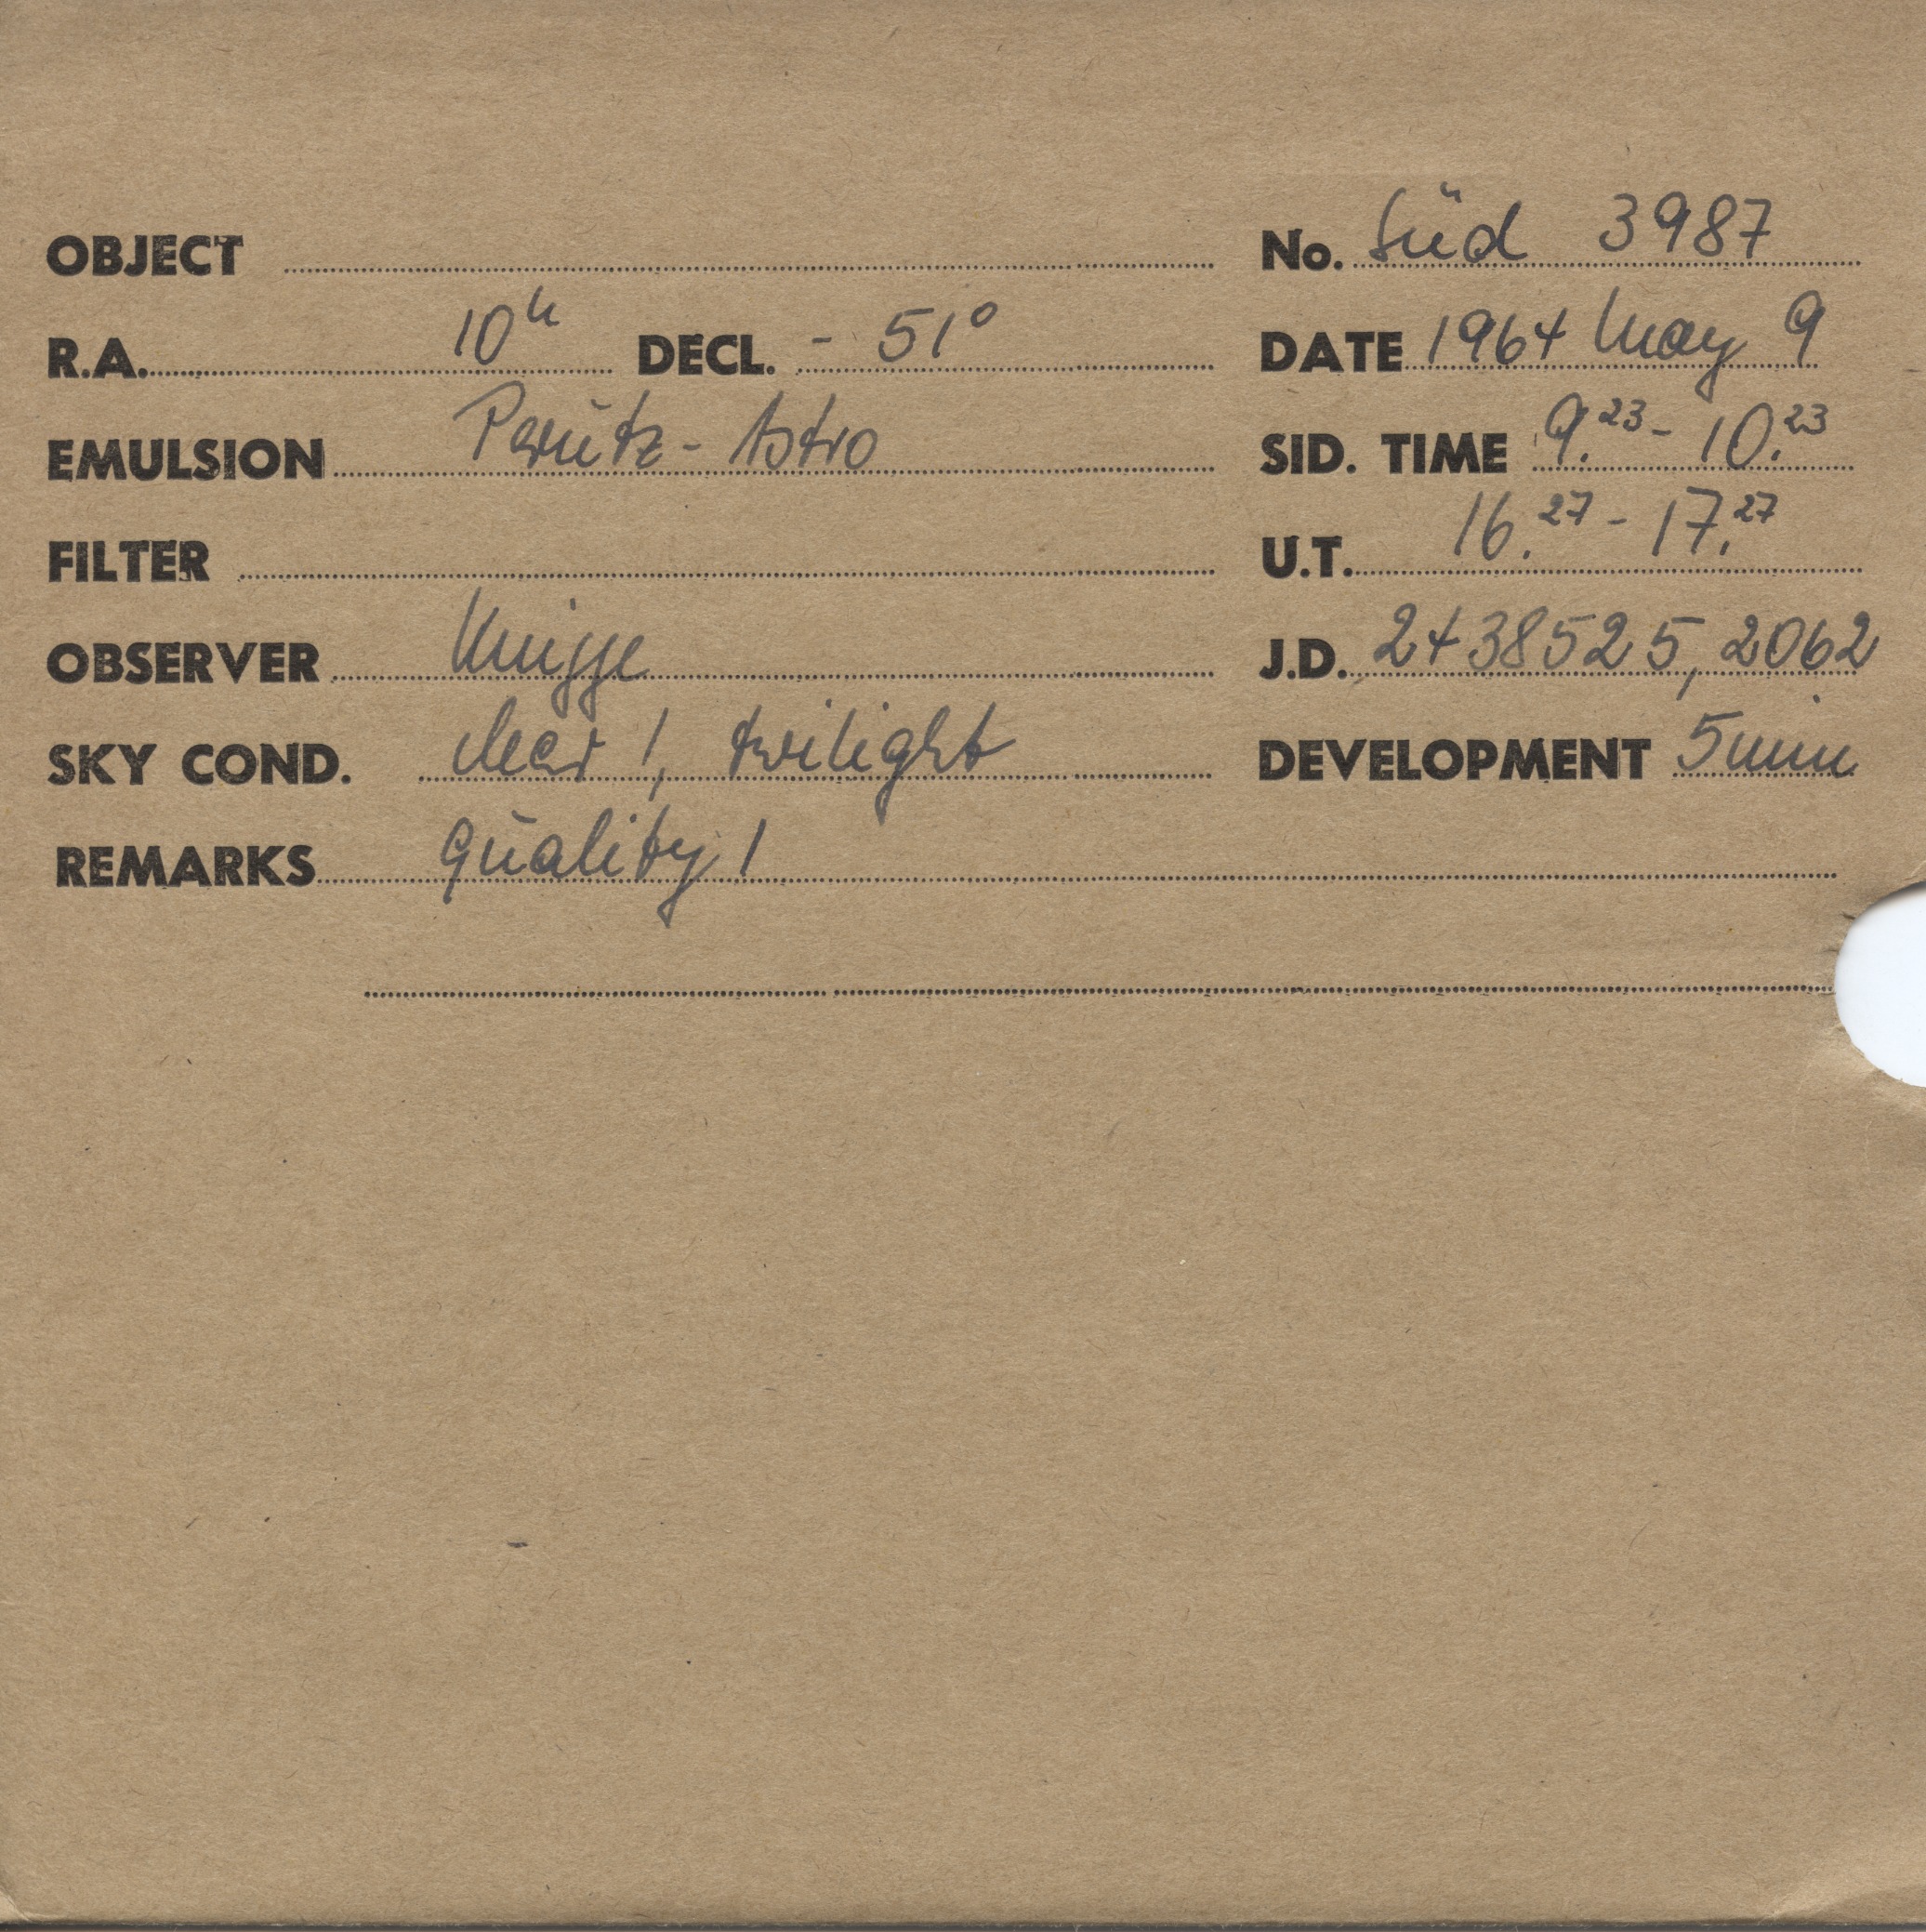 OBJECT No. Süd 3987
R.A. 10h DECL. - 51° DATE 1964 May 9
EMULSION Perutz - Astro SID. TIME 9.23 - 10.23
FILTER U.T. 16.27 - 17.27
OBSERVER Knigge J.D. 2438525,2062
SKY COND. clear 1, twilight DEVELOPMENT 5 min
REMARKS quality 1